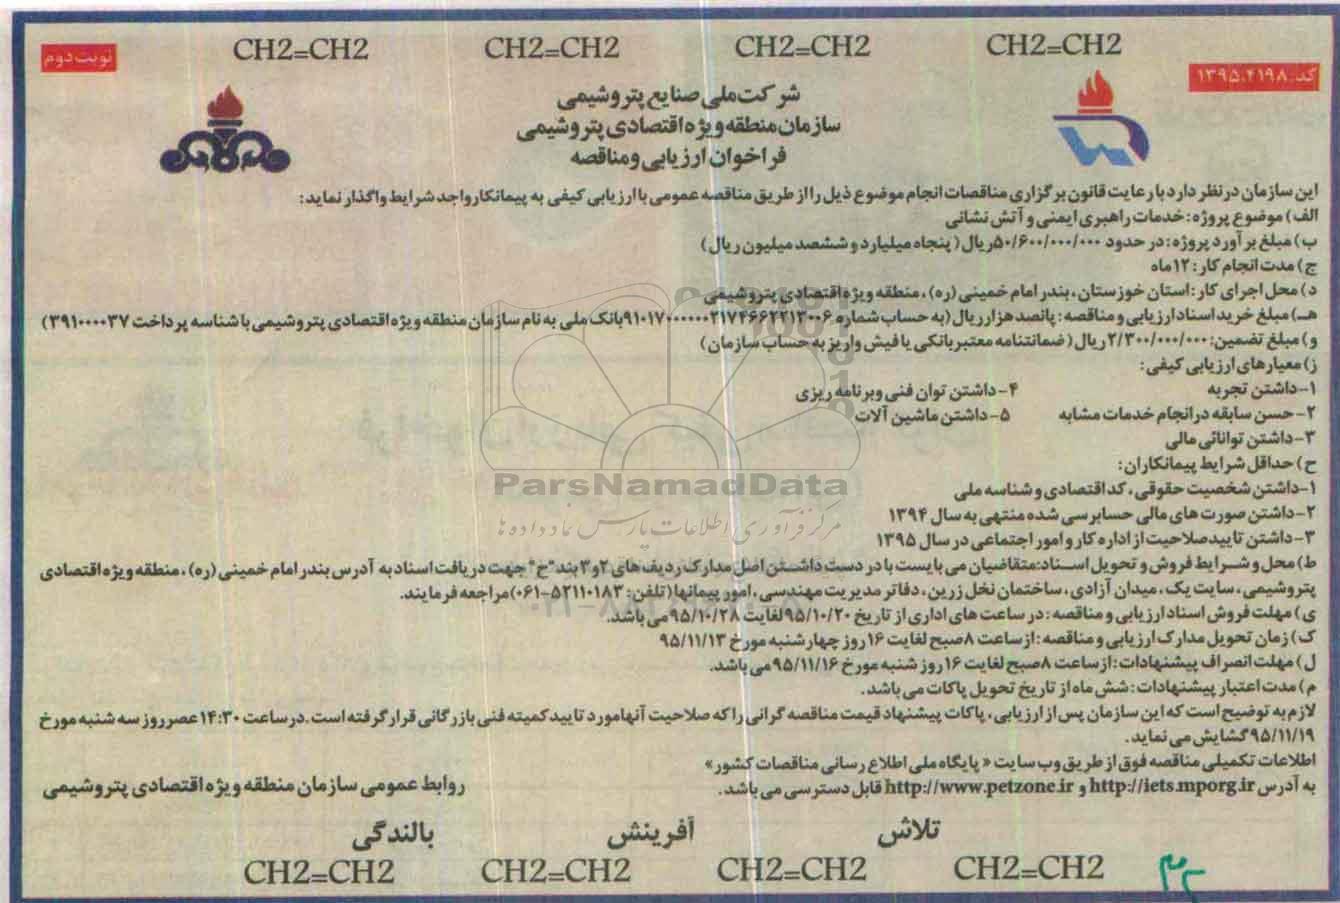 CH2=CH2 CH2=CH2 CH2=CH2 CH2=CH2
نوبت دوم
کد: ۱۳۹۵،۴۱۹۸
شرکت ملی صنایع پتروشیمی
سازمان منطقه ویژه اقتصادی پتروشیمی
فراخوان ارزیابی و مناقصه
این سازمان در نظر دارد با رعایت قانون برگزاری مناقصات انجام موضوع ذیل را از طریق مناقصه عمومی با ارزیابی کیفی به پیمانکار واجد شرایط واگذار نماید:
الف) موضوع پروژه: خدمات راهبری ایمنی و آتش نشانی
ب) مبلغ برآورد پروژه: در حدود ۵۰/۶۰۰/۰۰۰/۰۰۰ ریال ( پنجاه میلیارد و ششصد میلیون ریال )
ج) مدت انجام کار: ۱۲ ماه
د) محل اجرای کار: استان خوزستان، بندر امام خمینی (ره) ، منطقه ویژه اقتصادی پتروشیمی
هـ) مبلغ خرید اسناد ارزیابی و مناقصه: پانصد هزار ریال (به حساب شماره بانک ملی به نام سازمان منطقه ویژه اقتصادی پتروشیمی با شناسه پرداخت ۳۹۱۰۰۰۰۳۷)
و) مبلغ تضمین: ۲/۳۰۰/۰۰۰/۰۰۰ ریال ( ضمانتنامه معتبر بانکی یا فیش واریز به حساب سازمان )
ز) معیارهای ارزیابی کیفی:
۱- داشتن تجربه ۴- داشتن توان فنی و برنامه ریزی
۲- حسن سابقه در انجام خدمات مشابه ۵- داشتن ماشین آلات
۳- داشتن توانائی مالی
ح) حداقل شرایط پیمانکاران:
۱- داشتن شخصیت حقوقی، کد اقتصادی و شناسه ملی
۲- داشتن صورت های مالی حسابرسی شده منتهی به سال ۱۳۹۴
۳- داشتن تایید صلاحیت از اداره کار و امور اجتماعی در سال ۱۳۹۵
ط) محل و شرایط فروش و تحویل اسناد: متقاضیان می بایست با در دست داشتن اصل مدارک ردیف های ۲و۳ بند "ح" جهت دریافت اسناد به آدرس بندر امام خمینی (ره) ، منطقه ویژه اقتصادی
پتروشیمی، سایت یک، میدان آزادی، ساختمان نخل زرین، دفاتر مدیریت مهندسی، امور پیمانها (تلفن: ۵۲۱۱۰۱۸۳-۰۶۱) مراجعه فرمایند.
ی) مهلت فروش اسناد ارزیابی و مناقصه: در ساعت های اداری از تاریخ ۹۵/۱۰/۲۰ لغایت ۹۵/۱۰/۲۸ می باشد.
ک) زمان تحویل مدارک ارزیابی و مناقصه: از ساعت ۸ صبح لغایت ۱۶ روز چهارشنبه مورخ ۹۵/۱۱/۱۳
ل) مهلت انصراف پیشنهادات: از ساعت ۸ صبح لغایت ۱۶ روز شنبه مورخ ۹۵/۱۱/۱۶ می باشد.
م) مدت اعتبار پیشنهادات: شش ماه از تاریخ تحویل پاکات می باشد.
لازم به توضیح است که این سازمان پس از ارزیابی، پاکات پیشنهاد قیمت مناقصه گرانی را که صلاحیت آنها مورد تایید کمیته فنی بازرگانی قرار گرفته است. در ساعت ۱۴:۳۰ عصر روز سه شنبه مورخ
۹۵/۱۱/۱۹ گشایش می نماید.
اطلاعات تکمیلی مناقصه فوق از طریق وب سایت « پایگاه ملی اطلاع رسانی مناقصات کشور»
به آدرس http://iets.mporg.ir و http://www.petzone.ir قابل دسترسی می باشد.
روابط عمومی سازمان منطقه ویژه اقتصادی پتروشیمی
تلاش آفرینش بالندگی
CH2=CH2 CH2=CH2 CH2=CH2 CH2=CH2
ParsNamadData
مرکز فرآوری اطلاعات پارس نماد داده ها